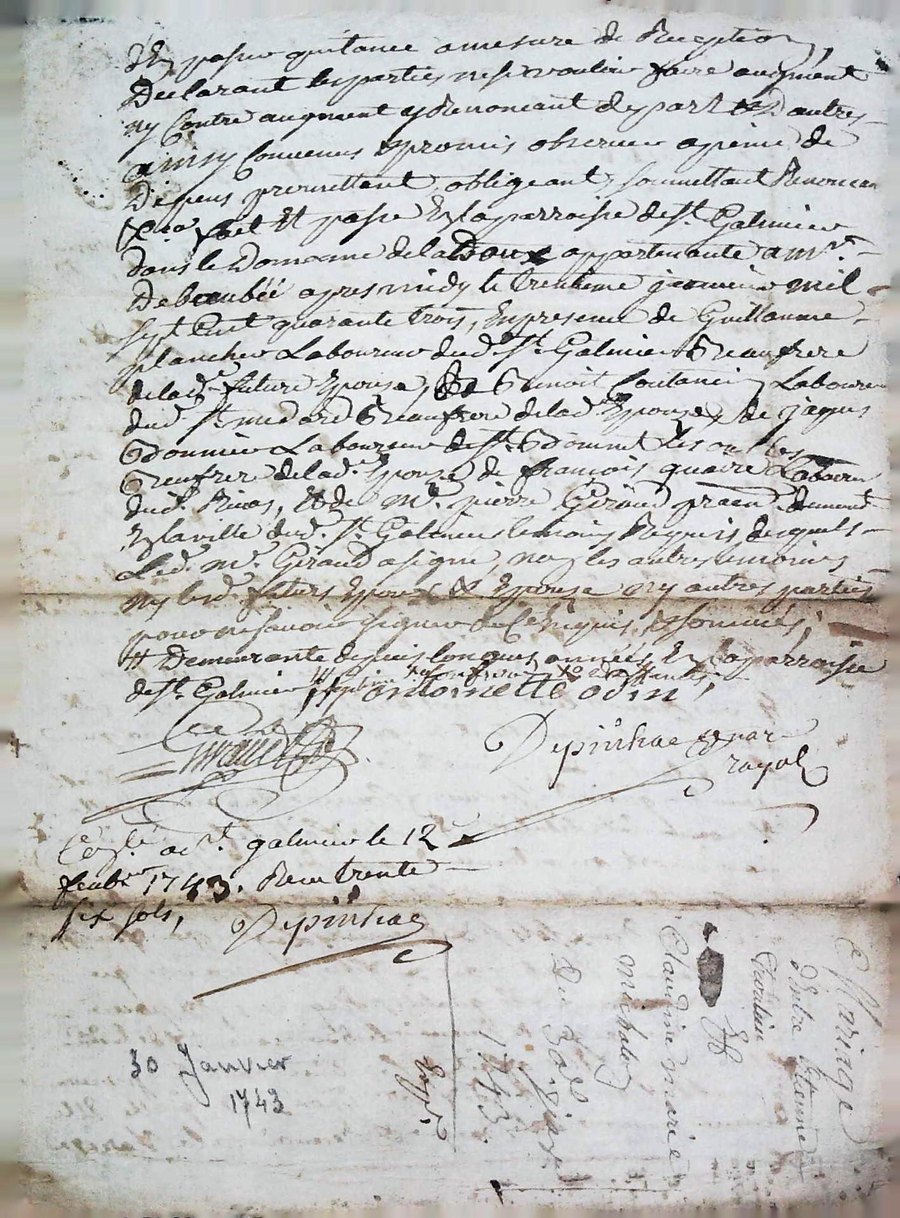 passer quitance a mesure de Reception,
Declarant les parties ne se vouloir faire augment
ny Contre augment y Renoncant de part Et D'autres
ainsy Convenus promis observer a peine de
Depens promettant, obligeant, soumettant Renoncan
fait Et passé En la parroisse de St. Galmier
dans le Domeine de la Doux appartenante a mr.
apres midy le trentieme janvier mil
sept Cent quarante trois, En presence de Guillaume
plancher Laboureur dud. St. Galmier Beaufrere
de lad. future Epouse, Benoit Laboureur
dud. St. medard Beaufrere de lad. Epouse, de jaques
Laboureur de St.
Beaufrere de lad. Epouse de françois Labour
dud. Rivas, Et de Me. pierre Giraud demeurt.
En la ville dud. St. Galmier temoins Requis desquels
Led. Mr. Giraud a signé, non les autres temoins
ny lesd. futurs Epoux & Epouse ny autres parties
pour ne savoir signer de Ce Requis, & sommés,
# Demeurante depuis longues années En la parroisse
de St. Galmier
antoinette odin
Giraud
Depinhac
royal
a St. galmier le 12e
feubr. 1743. Receu trente
six sols,
Depinhac
30 Janvier
1743
Mariage
D'Entre Etienne
Et
Claudine marie
Du 30e janvr.
1743.
Exp.